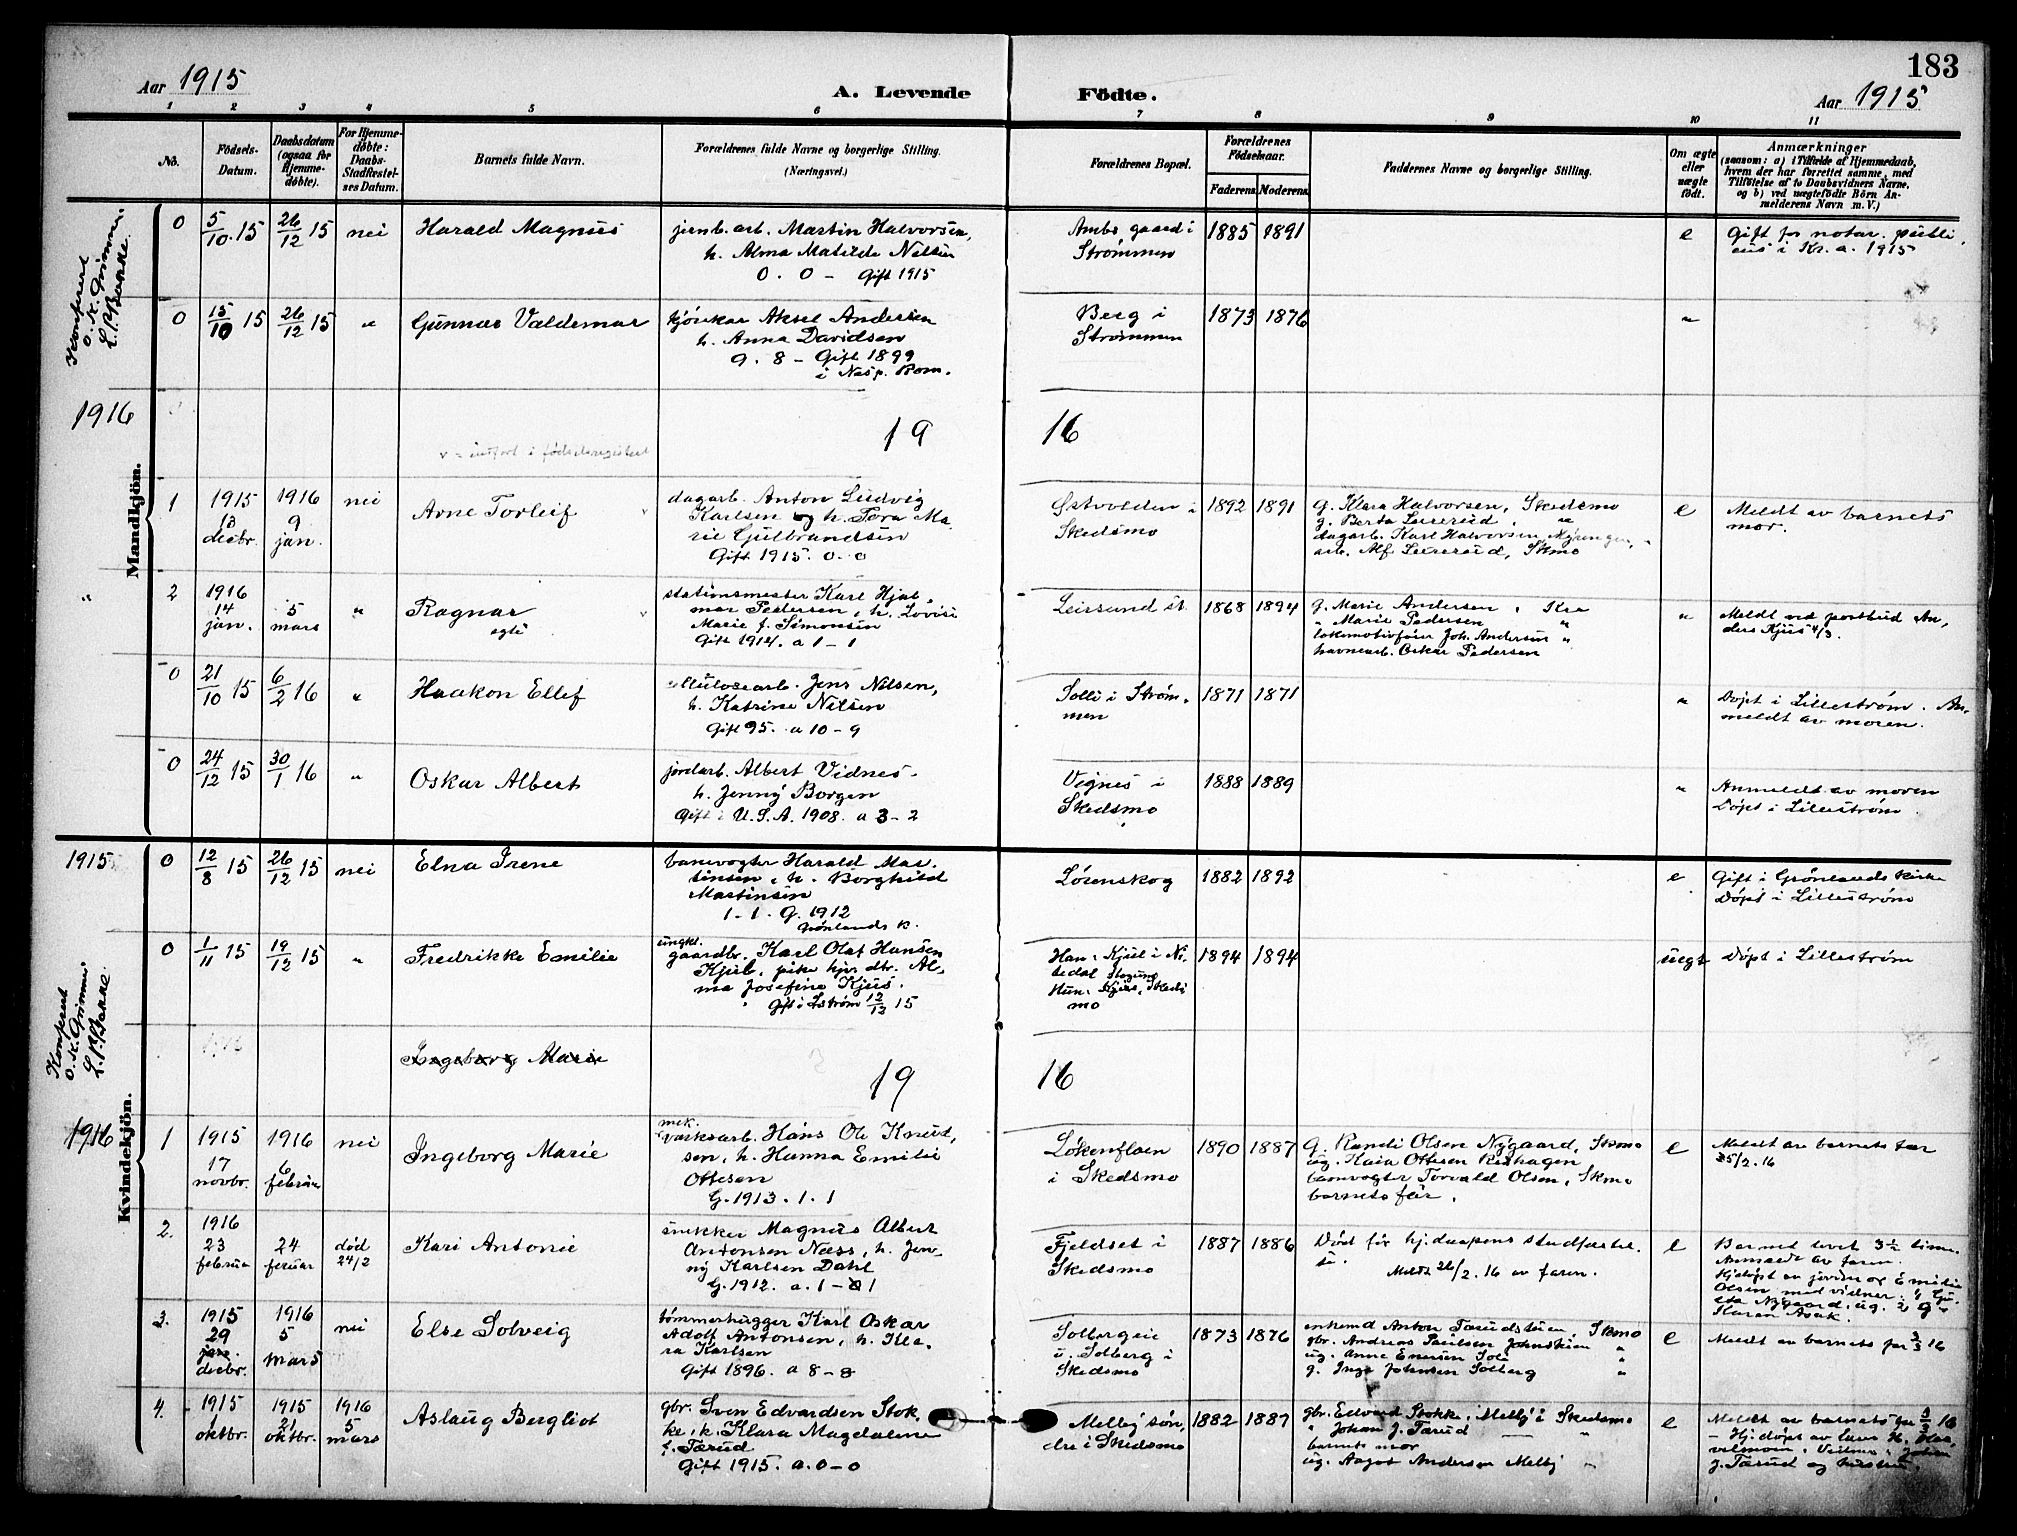 183
Aar 1915
A. Levende Födte.
Aar 1915
1 2 3 4 5 6 7 8 9 10 11
No.
Födsels-Datum.
Daabsdatum (ogsaa for Hjemme-döbte).
For Hjemme-döbte: Daabs-Stadfæstel-ses Datum.
Barnets fulde Navn.
Forældrenes fulde Navne og borgerlige Stilling. (Næringsvei.)
Forældrenes Bopæl.
Forældrenes Födselsaar.
Faderens. Moderens.
Faddernes Navne og borgerlige Stilling.
Om ægte eller uægte födt.
Anmærkninger
(saasom: a) i Tilfælde af Hjemmedaab, hvem der har forrettet samme, med Tilföielse af to Daabsvidners Navne, og b) ved uægtefödte Börn An-melderens Navn m. V.)
Konferert
O. K. Grimme.
L. P. Bakke.
0 5/10 15 26/12 15 nei Harald Magnus
jernb. arb. Martin Halvorsen,
h. Alma Matilde Nelsen
0. 0 – Gift 1915
Ambs gaard i
Strømmen
1885 1891 e
Gift for notar. publi
cus i Kr.a. 1915
0 15/10 15 26/12 15 „ Gunnar Valdemar
kjøskar Aksel Andersen
h. Anna Davidsen
9. 8 – Gift 1899
i Nesp. Rom.
Berg i
Strømmen
1873 1876 „
1916
19 16
v = indført i fødselsregistret
Mandkjön.
1 1915 13 decbr. 1916 9 jan. nei Arne Torleif v
dagarb. Anton Ludvig
Karlsen og h. Tora Ma
rie Gulbrandsen
Gift 1915. 0–0
Østvolden i
Skedsmo
1892 1891
g. Klara Halvorsen, Skedsmo
g. Berta Leirerud, „
dagarb. Karl Halvorsen,
arb. Alf Leirerud, Skmo
e
Meldt av barnets
mor.
„ 2 1916 14 jan. 5 mars „ Ragnar v
egte
stationsmester Karl Hjal
mar Pedersen, h. Lovise
Marie f. Simonsen
Gift 1914. a 1 – 1
Leirsund st.
1868 1894
g. Marie Andersen, Kra
„ Marie Pedersen „
lokomotivfører Joh. Andersen „
havnearb. Oskar Pedersen
„
Meldt ved postbud An
ders Kjus 4/3.
0 21/10 15 6/2 16 „ Haakon Ellef
cellulosearb. Jens Nilsen,
h. Katrine Nilsen
Gift 95. a 10 – 9
Solli i Strøm
men
1871 1871 „
Døpt i Lillestrøm. An
meldt av moren.
0 24/12 15 30/1 16 „ Oskar Albert
jordarb. Albert Vidnes
h. Jenny Borgen
Gift i U.S.A. 1908. a 3 – 2
Vignes i
Skedsmo
1888 1889 „
Anmeldt av moren
Døpt i Lillestrøm.
1915 0 12/8 15 26/12 15 nei Elna Irene
banevogter Harald Mar
tinsen, h. Borghild
Martinsen
1 – 1. G. 1912
Grønlands k.
Lørenskog
1882 1892 e
Gift i Grønlands kirke
Døpt i Lillestrøm
0 1/11 15 19/12 15 „ Fredrikke Emilie
ungkl.
gaardbr. Karl Olaf Hansen
Kjul, pike hjv. dtr. Al
ma Josefine Kjus.
Gift i Lstrøm 12/12 15
Han: Kjul i Ni
tedal
Hun: Kjus, Skeds
mo
1894 1894 uegt
Døpt i Lillestrøm
Konferert
O. K. Grimme.
L. P. Bakke.
1916
Ingeborg Marie
19 16
Kvindekjön.
1916 1 1915 17 novbr. 1916 6 februar nei Ingeborg Marie
mek.
værksarb. Hans Ole Knud
sen, h. Hanna Emilie
Ottesen
G. 1913. 1. 1
Løkenflaen
i Skedsmo
1890 1887
G. Randi Olsen Nygaard, Skmo
ug. Kaia Ottesen Rishagen
banevogter Torvald Olsen, Skmo
barnets far.
e
Meldt av barnets far
25/2. 16
2. 1916 23 februar 24 feruar død 24/2 Kari Antonie
snekker Magnus Albert
Antonsen Næss, h. Jen
ny Karlsen Dahl
G. 1912. a. 1 – 1
Fjeldset i
Skedsmo
1887 1886
Død før hj.daapens stadfæstel
se.
Meldt 26/2. 16 av faren.
e
Barnet levet 3½ time.
Anmeldt av faren.
Hj.døpt av jordm. og Emilie
Olsen med vidner:
Nygaard, ug. &
Karen Asak.
3. 1915 29 decbr. 1916 5 mars nei Else Solveig
tømmerhugger Karl Oskar
Adolf Antonsen, h. Kla
ra Karlsen
Gift 1896 a 8 – 8
Solbergeie
u. Solberg i
Skedsmo
1873 1876
enkemd Anton Tærudstuen, Skmo
gbr. Andreas Paulsen Johnsrud „
ug. Anne Enersen Sole „
g. Inga Johnsen Solberg „
e
Meldt av barnets far 3/3 16
4. 1915 1 oktbr. 1915 21 oktbr. 1916 5 mars Aslaug Bergliot
gbr. Sven Edvardsen Stok
ke, h. Klara Magdalene
f. Tærud
Gift 1915. a. 0 – 0
Melby søn
dre i Skedsmo
1882 1887
gbr. Edvard Stokke, Melby i Skedsmo
„ Johan J. Tærud — „
barnets mor
ug. Aagot Andersen Melby „
e
Meldt av barnets far 3/3 16
– Hj.døpt av
Vidner: Johan
J. Tærud og hustru.